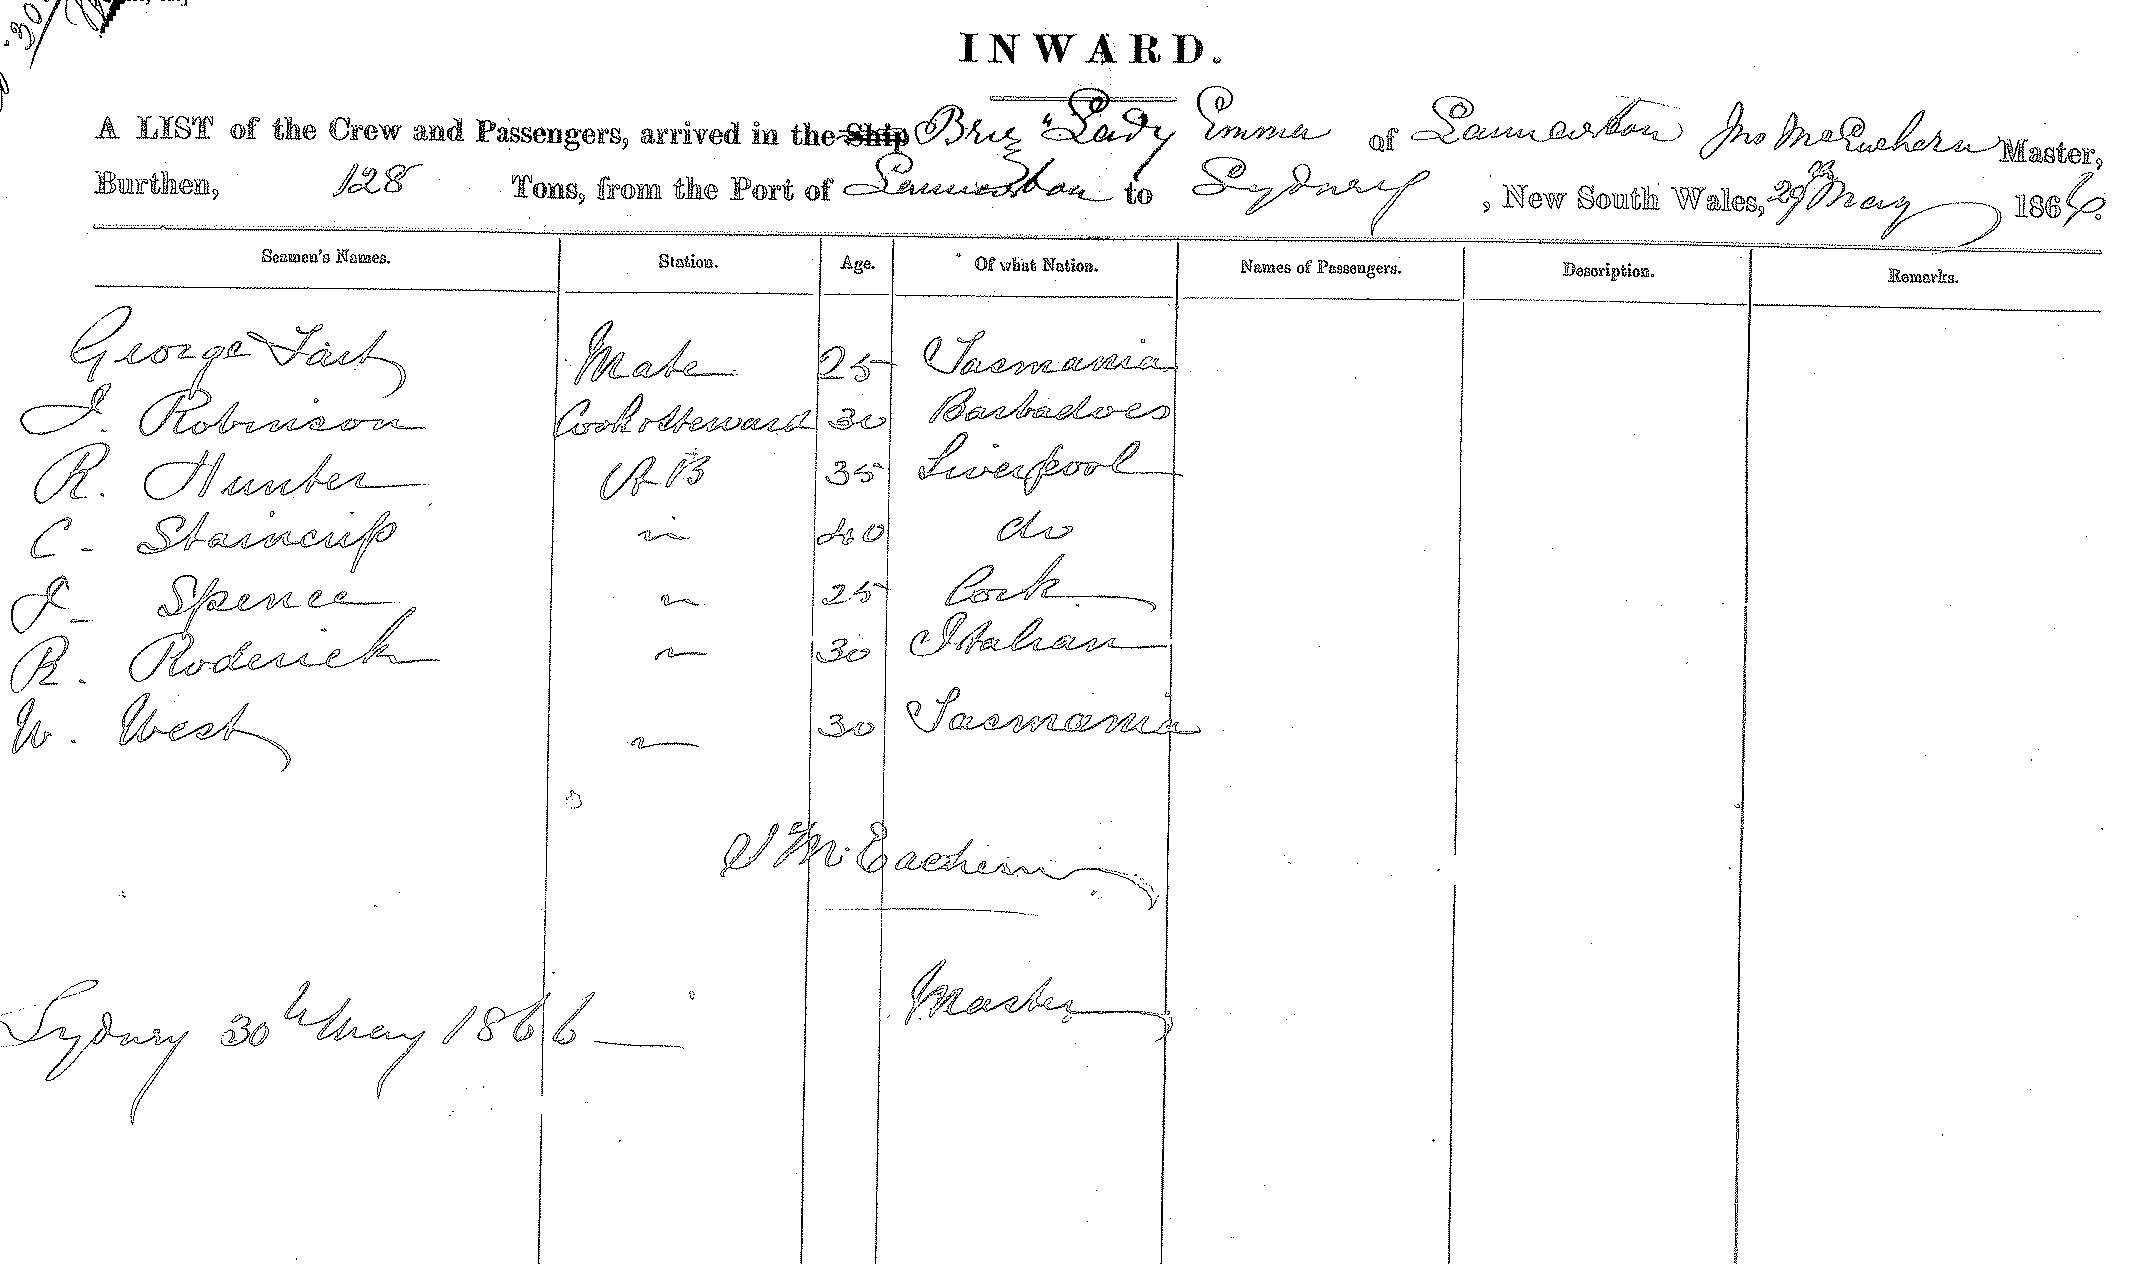 INWARD.
A LIST of the Crew and Passengers, arrived in the Ship Brig "Lady Emma of Launceston Jno McEachern Master,
Burthen, 128 Tons, from the Port of Launceston to Sydney, New South Wales, 29th May 1866.
Seamen's Names. Station. Age. Of what Nation. Names of Passengers. Description. Remarks.
George Mate 25 Tasmania
J. Robinson Cook & Steward 30 Barbadoes
R. Hunter AB 35 Liverpool
C - " 40 do
J - Spence " 25 Cork
R. Roderick " 30 Italian
W. West " 30 Tasmania
McEachern
Master
Sydney 30th May 1866